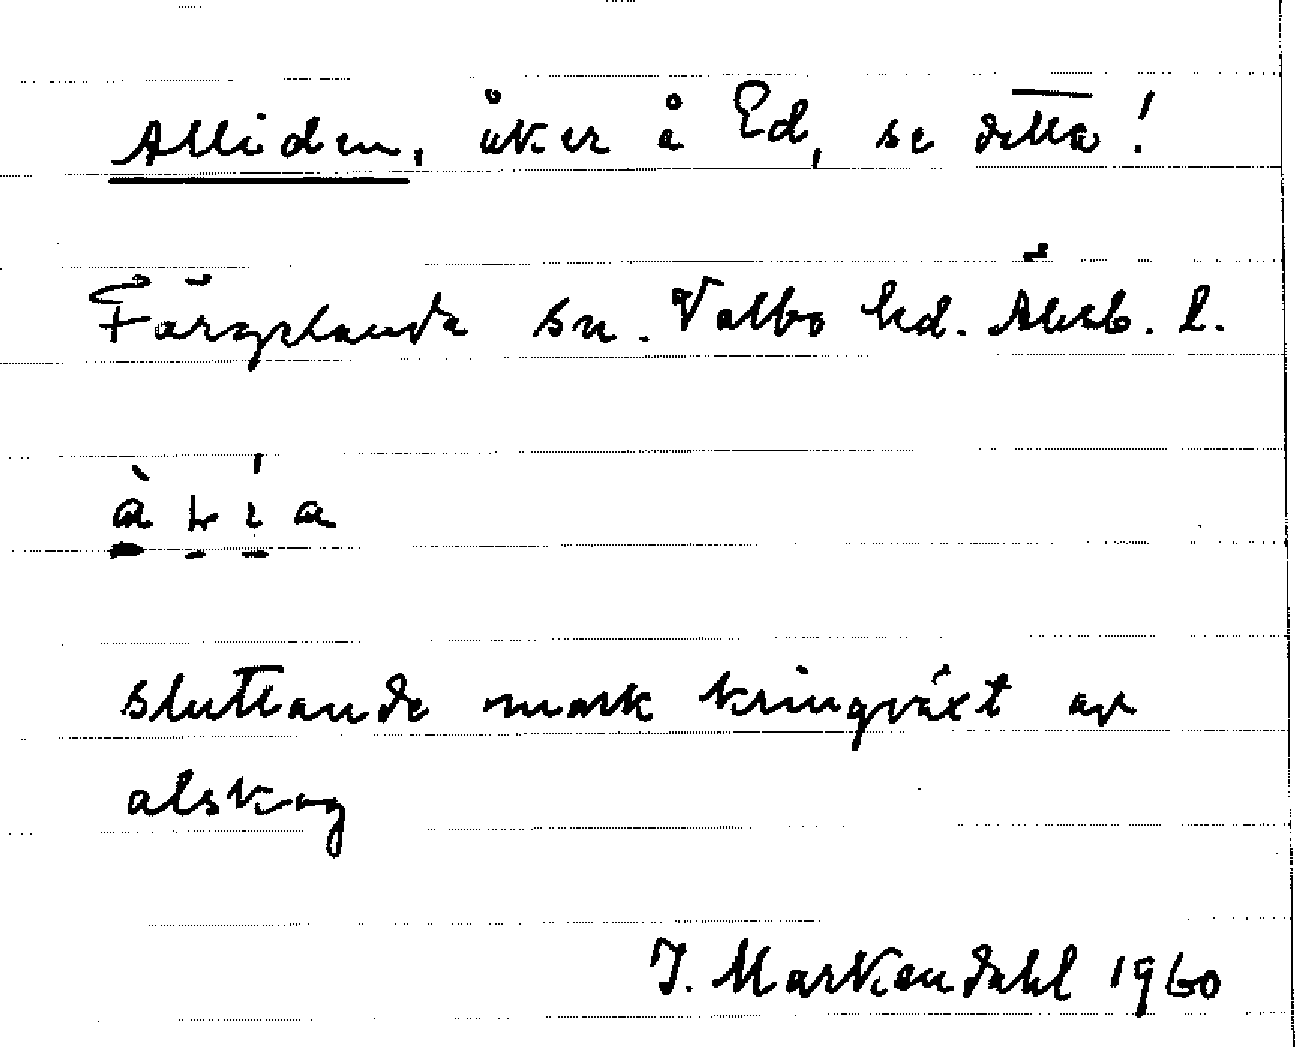 Alliden, åker å Ed, se detta!
Färgelanda sn. Valbo hd. Älvsb. l.
sluttande mark kringväxt av
alskog
J. Markendahl 1960